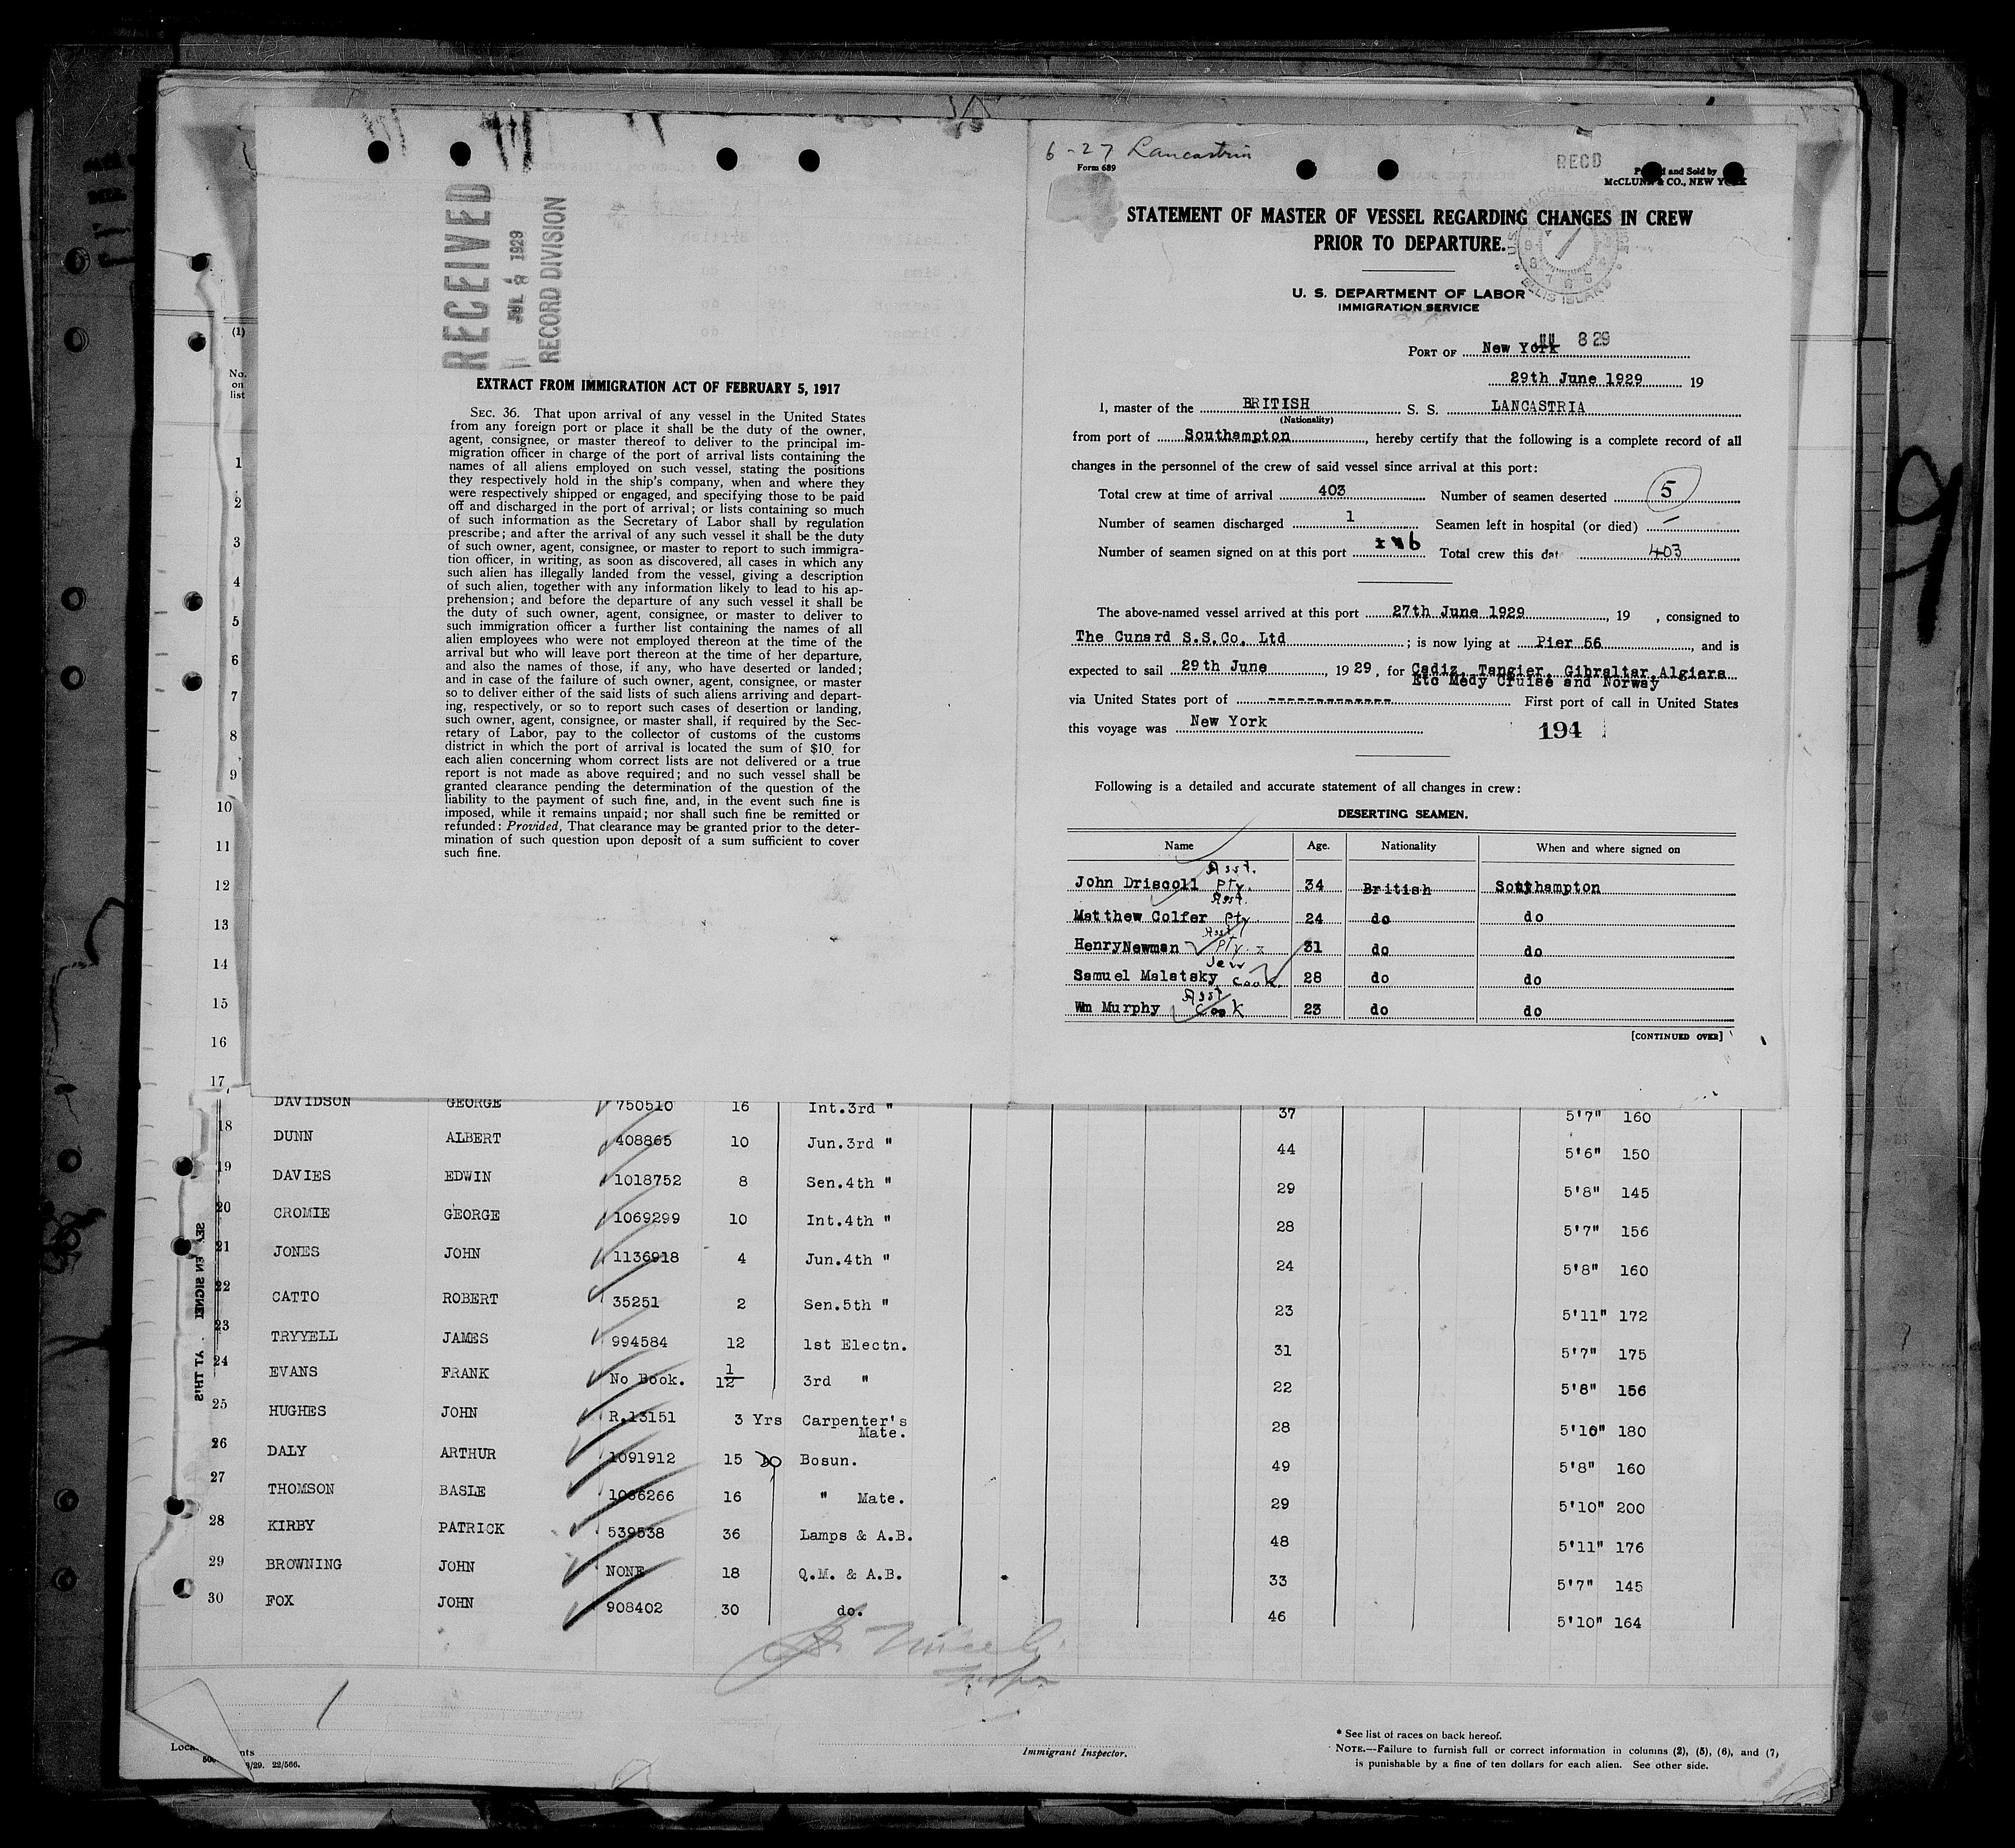 RECEIVED
JUL 8 1929
RECORD DIVISION
EXTRACT FROM IMMIGRATION ACT OF FEBRUARY 5, 1917
SEC. 36. That upon arrival of any vessel in the United States
from any foreign port or place it shall be the duty of the owner,
agent, consignee, or master thereof to deliver to the principal im-
migration officer in charge of the port of arrival lists containing the
names of all aliens employed on such vessel, stating the positions
they respectively hold in the ship's company, when and where they
were respectively shipped or engaged, and specifying those to be paid
off and discharged in the port of arrival; or lists containing so much
of such information as the Secretary of Labor shall by regulation
prescribe; and after the arrival of any such vessel it shall be the duty
of such owner, agent, consignee, or master to report to such immigra-
tion officer, in writing, as soon as discovered, all cases in which any
such alien has illegally landed from the vessel, giving a description
of such alien, together with any information likely to lead to his ap-
prehension; and before the departure of any such vessel it shall be
the duty of such owner, agent, consignee, or master to deliver to
such immigration officer a further list containing the names of all
alien employees who were not employed thereon at the time of the
arrival but who will leave port thereon at the time of her departure,
and also the names of those, if any, who have deserted or landed;
and in case of the failure of such owner, agent, consignee, or master
so to deliver either of the said lists of such aliens arriving and depart-
ing, respectively, or so to report such cases of desertion or landing,
such owner, agent, consignee, or master shall, if required by the Sec-
retary of Labor, pay to the collector of customs of the customs
district in which the port of arrival is located the sum of $10 for
each alien concerning whom correct lists are not delivered or a true
report is not made as above required; and no such vessel shall be
granted clearance pending the determination of the question of the
liability to the payment of such fine, and, in the event such fine is
imposed, while it remains unpaid; nor shall such fine be remitted or
refunded: Provided, That clearance may be granted prior to the deter-
mination of such question upon deposit of a sum sufficient to cover
such fine.
6-27 Lancastria
Form 689
RECD
and Sold by
McCLUN & CO., NEW YORK
STATEMENT OF MASTER OF VESSEL REGARDING CHANGES IN CREW
PRIOR TO DEPARTURE.
ELLIS ISLAND
U. S. DEPARTMENT OF LABOR
IMMIGRATION SERVICE
PORT OF New York 8 29
29th June 1929 19
I, master of the BRITISH S. S. LANCASTRIA
(Nationality)
from port of Southampton, hereby certify that the following is a complete record of all
changes in the personnel of the crew of said vessel since arrival at this port:
Total crew at time of arrival 403 Number of seamen deserted 5
Number of seamen discharged 1 Seamen left in hospital (or died) —
Number of seamen signed on at this port 6 Total crew this dat 403
The above-named vessel arrived at this port 27th June 1929, 19 , consigned to
The Cunard S.S.Co. Ltd ; is now lying at Pier 56, and is
expected to sail 29th June, 19 29, for Cadiz, Tangier, Gibraltar, Algiers
Etc Medy Cruise and Norway
via United States port of ------------- First port of call in United States
this voyage was New York
194
Following is a detailed and accurate statement of all changes in crew:
DESERTING SEAMEN.
Name Age. Nationality When and where signed on
John Driscoll Asst. Pty. 34 British Southampton
Matthew Colfer Asst. Pty 24 do do
Henry Newman Asst Pty. 31 do do
Samuel Malatsky Jew Cook. 28 do do
Wm Murphy Asst Cook 23 do do
[CONTINUED OVER]
(1)
No.
on
list
1
2
3
4
5
6
7
8
9
10
11
12
13
14
15
16
17
DAVIDSON GEORGE 750510 16 Int.3rd " 37 5'7" 160
18 DUNN ALBERT 408865 10 Jun.3rd " 44 5'6" 150
19 DAVIES EDWIN 1018752 8 Sen.4th " 29 5'8" 145
20 CROMIE GEORGE 1069299 10 Int.4th " 28 5'7" 156
21 JONES JOHN 1136918 4 Jun.4th " 24 5'8" 160
22 CATTO ROBERT 35251 2 Sen.5th " 23 5'11" 172
23 TRYYELL JAMES 994584 12 1st Electn. 31 5'7" 175
24 EVANS FRANK No Book. 1/12 3rd " 22 5'8" 156
25 HUGHES JOHN R.13151 3 Yrs Carpenter's 28 5'10" 180
Mate.
26 DALY ARTHUR 1091912 15 Do Bosun. 49 5'8" 160
27 THOMSON BASLE 1036266 16 " Mate. 29 5'10" 200
28 KIRBY PATRICK 539538 36 Lamps & A.B. 48 5'11" 176
29 BROWNING JOHN NONE 18 Q.M. & A.B. 33 5'7" 145
30 FOX JOHN 908402 30 do. 46 5'10" 164
Immigrant Inspector.
* See list of races on back hereof.
NOTE.—Failure to furnish full or correct information in columns (2), (5), (6), and (7)
is punishable by a fine of ten dollars for each alien. See other side.
nts
/29. 22/566.
9